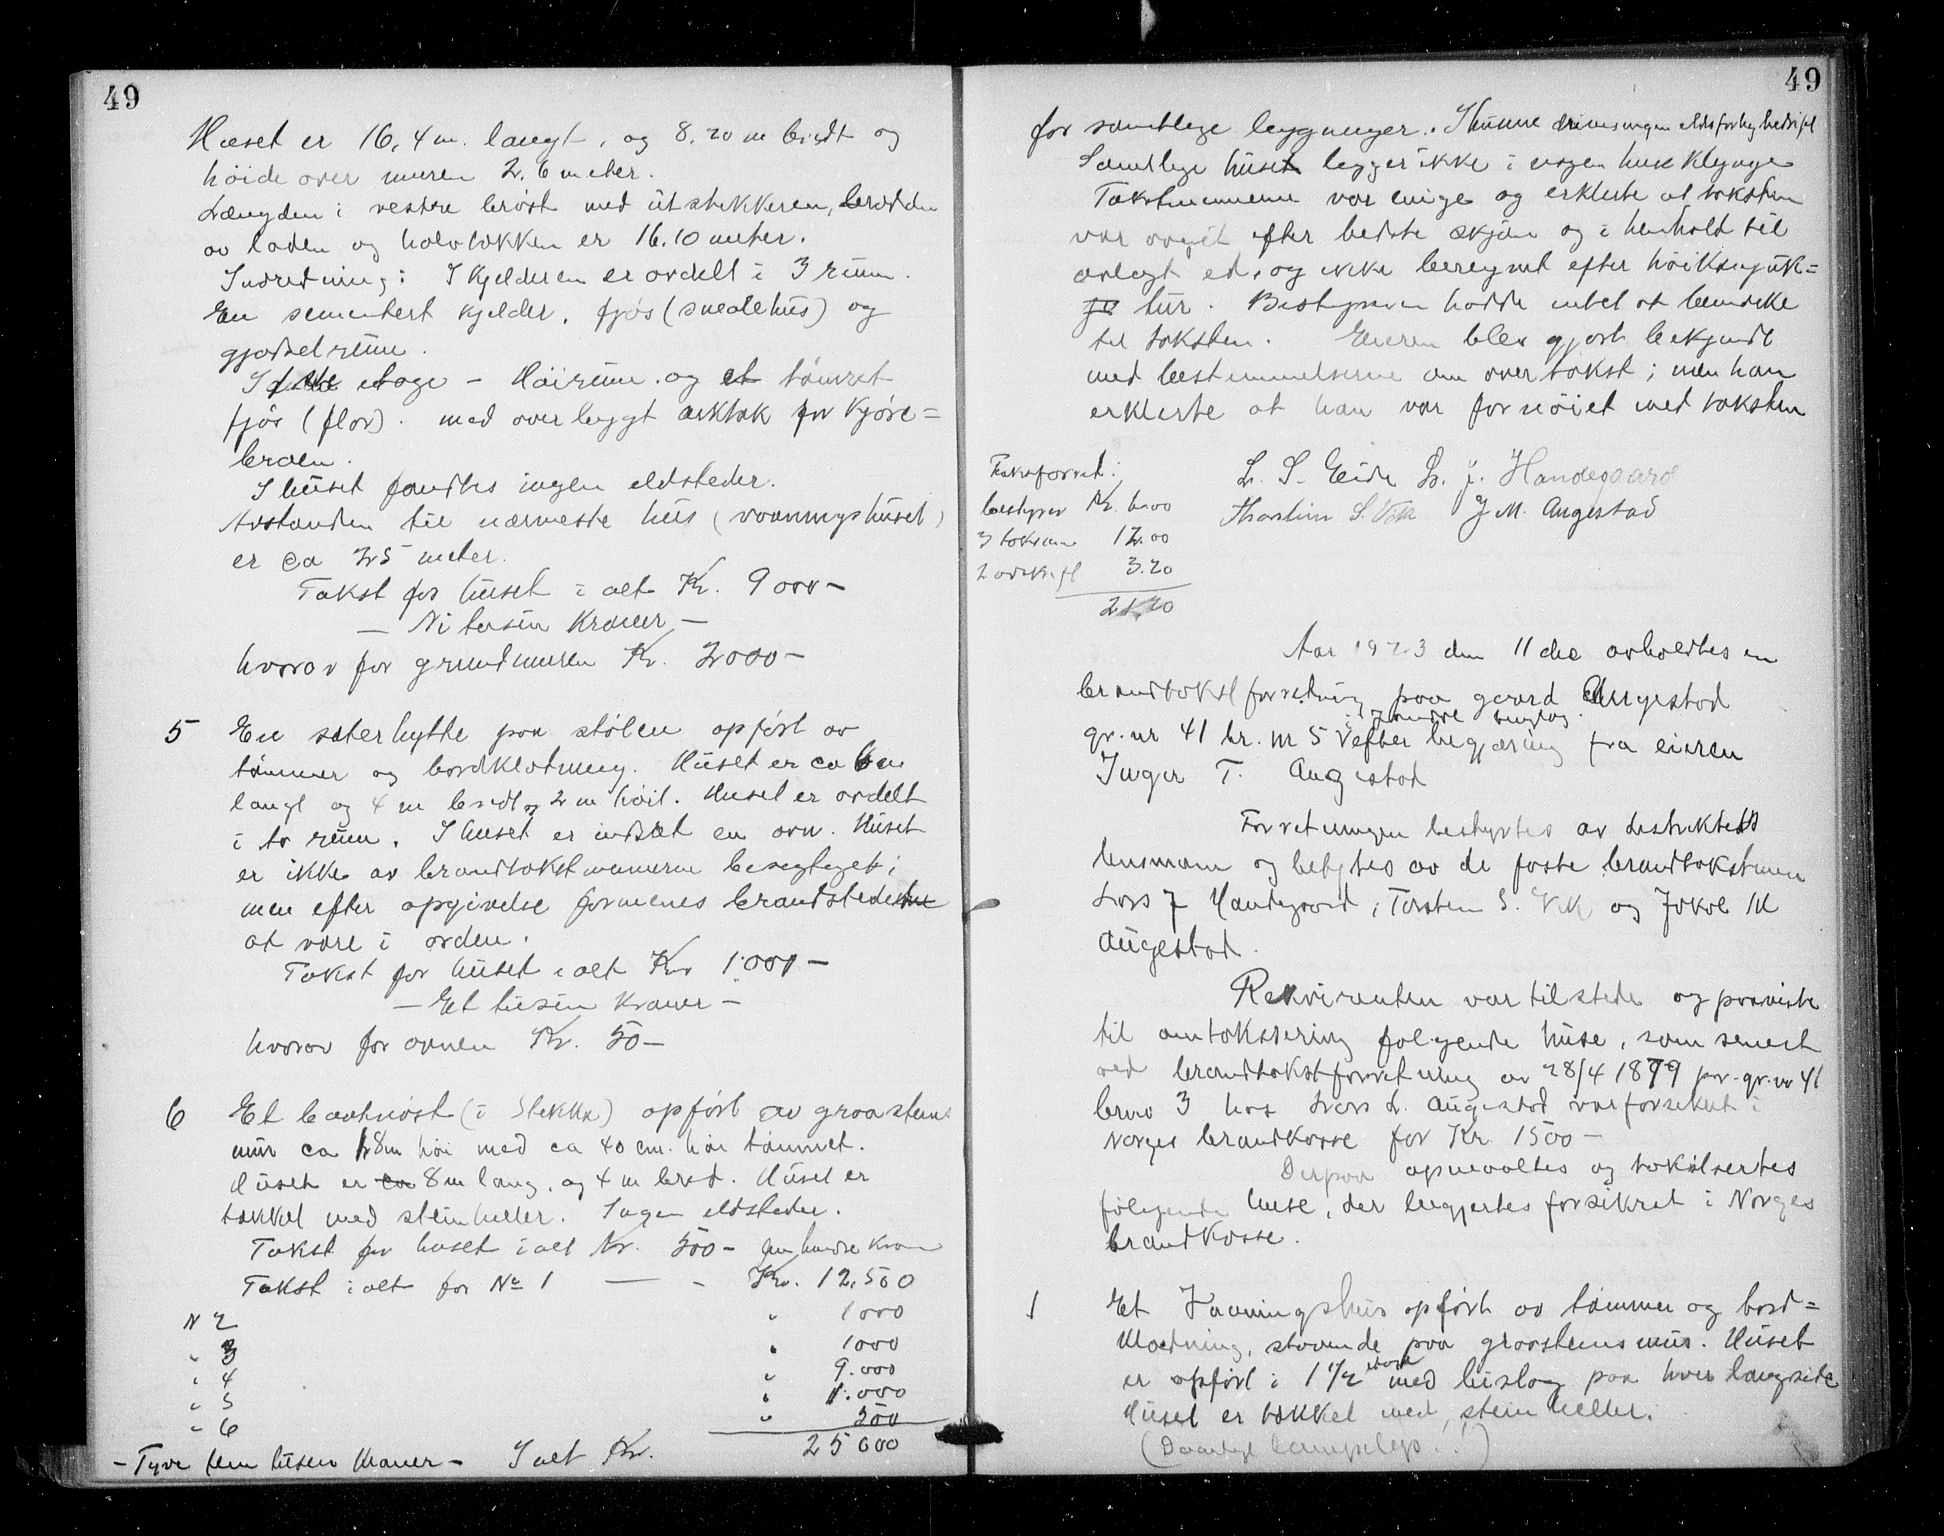 49
Huset er 16,4 m. langt, og 8.20 m bredt og
höide over muren 2.6 meter.
Længden i vestre bröst med utstikkeren, bredden
av laden og halvtækken er 16.10 meter.
Indredning: I kjelderen er avdelt i 3 rum.
En sementert kjelder, fjös (smalehus) og
gjødselrum.
I etage – Höirum og et tömret
fjös (flor). med overbygt arktak for kjöre=
broen.
I huset fandtes ingen eldsteder.
Avstanden til nærmeste hus (vaaningshuset)
er ca 25 meter.
Takst for huset i alt Kr. 9000 –
– Ni tusin Kroner –
hvorav for grundmuren Kr. 2000 –
5 En sæterhytte paa stölen opfört av
tömmer og bordklædning. Huset er ca 6 m
langt og 4 m bredt og 2 m höit. Huset er avdelt
i to rum. I huset er indsat en ovn. Huset
er ikke av brandtakstmennerne besigtiget;
men efter opgivelse formenes brandstedet
at være i orden.
Takst for huset i alt Kr 1.000 –
– Et tusin Kroner –
hvorav for ovnen Kr. 50 –
6 Et baatnöst (i Stekka) opfört av graastens
mur ca 1,8m höi med ca 40 cm. höi tömmer.
Huset er ca 8 m lang, og 4 m bred. Huset er
tækket med steinheller. Ingen eldsteder.
Takst for huset i alt Kr. 500 – fem hundre Kroner
Takst i alt for No 1 — - Kr. 12.500
N 2 " 1000
" 3 " 1000
" 4 " 9.000
" 5 " 1.000
" 6 " 500
– Tyve fem tusen Kroner – I alt Kr. 25 000
49
for samtlige bygninger. I husene drives ingen eldsfarlig bedrift
Samtlige huset ligger ikke i nogen huse klynge
Takstmennene var enige og erklerte at taksten
var avgit efter bedste skjön og i henhold til
avlagt ed, og ikke beregnet efter höikonjunk=
tur. Bestyreren hadde intet at bemerke
til taksten. Eieren blev gjort bekjendt
med bestemmelserne om overtakst; men han
erklerte at han var fornöiet med taksten
L. S. Eide L. J. Handegaard
Thorstein S. Vik J M. Augestad
bestyrer Kr. 6.00
3 takstm 12.00
2 avskrift 3.20
21.20
Aar 1923 den 11 dec avholdtes en
brandtakstforretning paa gaard Augestad
gr. nr 41 br. nr 5 efter begjæring fra eieren
Inger T. Augestad
Forretningen bestyrtes av distriktets
lensmann og betjentes av de faste brandtakstmen
Lars J Handegaard, Torstein S. Vik og Jakob M
Augestad.
Rekvirenten var tilstede og paaviste
til omtaksering folgende huse, som senest
ved brandtakstforretning av 28/4 1879 paa gr. nr 41
br nr 3 hos Lars L. Augestad var forsikret i
Norges brandkasse for Kr. 1500 –
Derpaa opmaaltes og taksertes
fölgende huse, der begjertes forsikret i Norges
brandkasse.
1 Et Vaaningshus opfört av tömmer og bord=
klædning, staaende paa graastensmur. Huset
er opfört i 1 1/2 etage med bislag paa hver langside
Huset er tækket med steinheller.